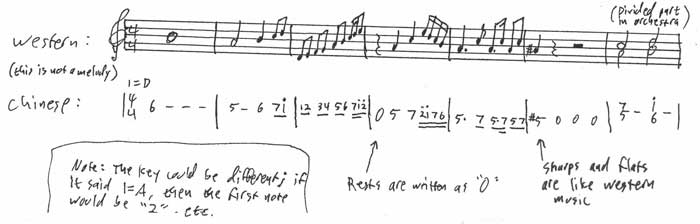 (Divided part
in orchestra)
Western:
(this is not a melody)
1=D
Chinese: |4/4 6 - - - | 5 - 6 7i | 12 34 56 7i2 | 0 5 7 2i76 | 5. 7 5.7 57 | #5 0 0 0 | 7/5 - i/6 - |
Note: The key could be different; if
it said 1=A, then the first note
would be "2". etc.
Rests are written as "0"
sharps and flats
are like western
music